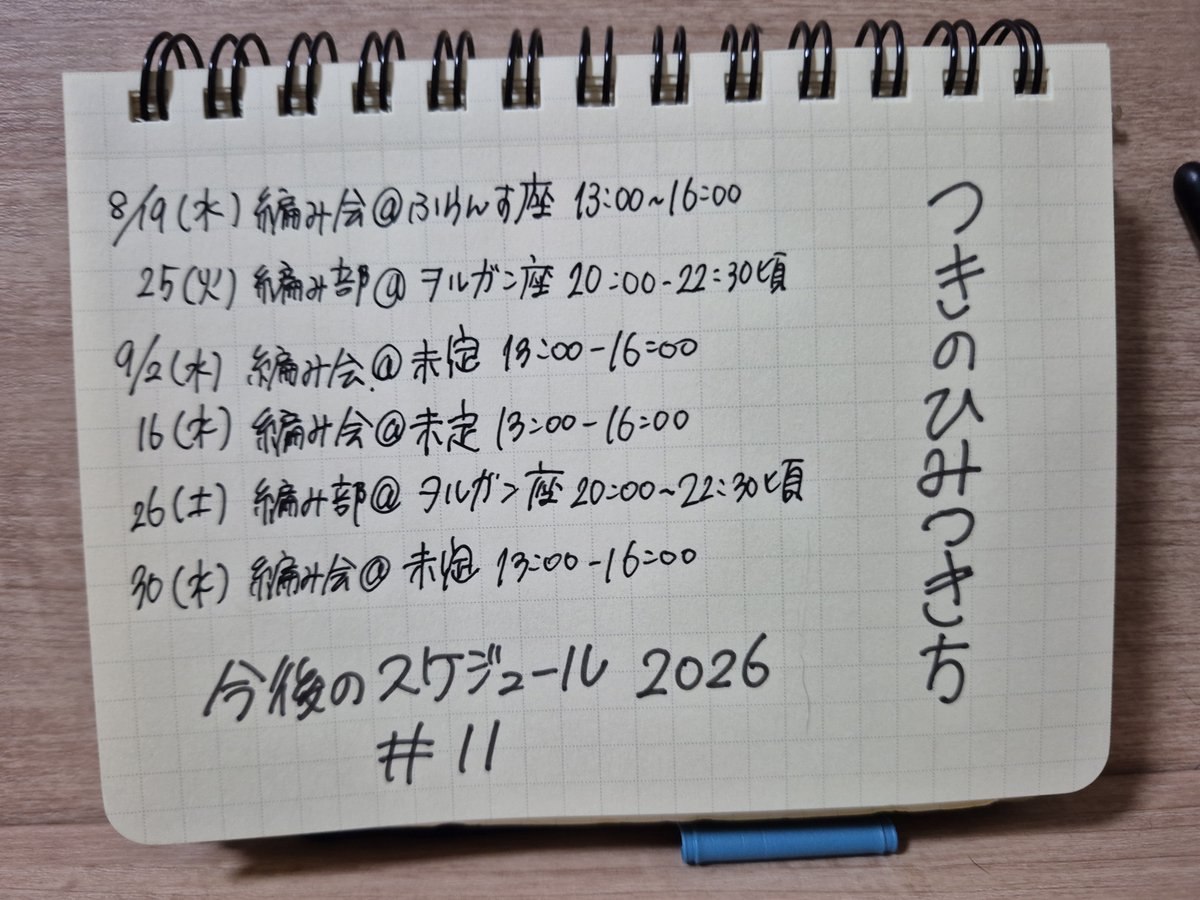 8/19(水) 編み会@ふらんす座 13:00~16:00
25(火) 編み部@ヲルガン座 20:00-22:30頃
9/2(水) 編み会@未定 13:00-16:00
16(水) 編み会@未定 13:00-16:00
26(土) 編み部@ヲルガン座 20:00~22:30頃
30(水) 編み会@未定 13:00-16:00
今後のスケジュール 2026
#11
つきのひみつきち